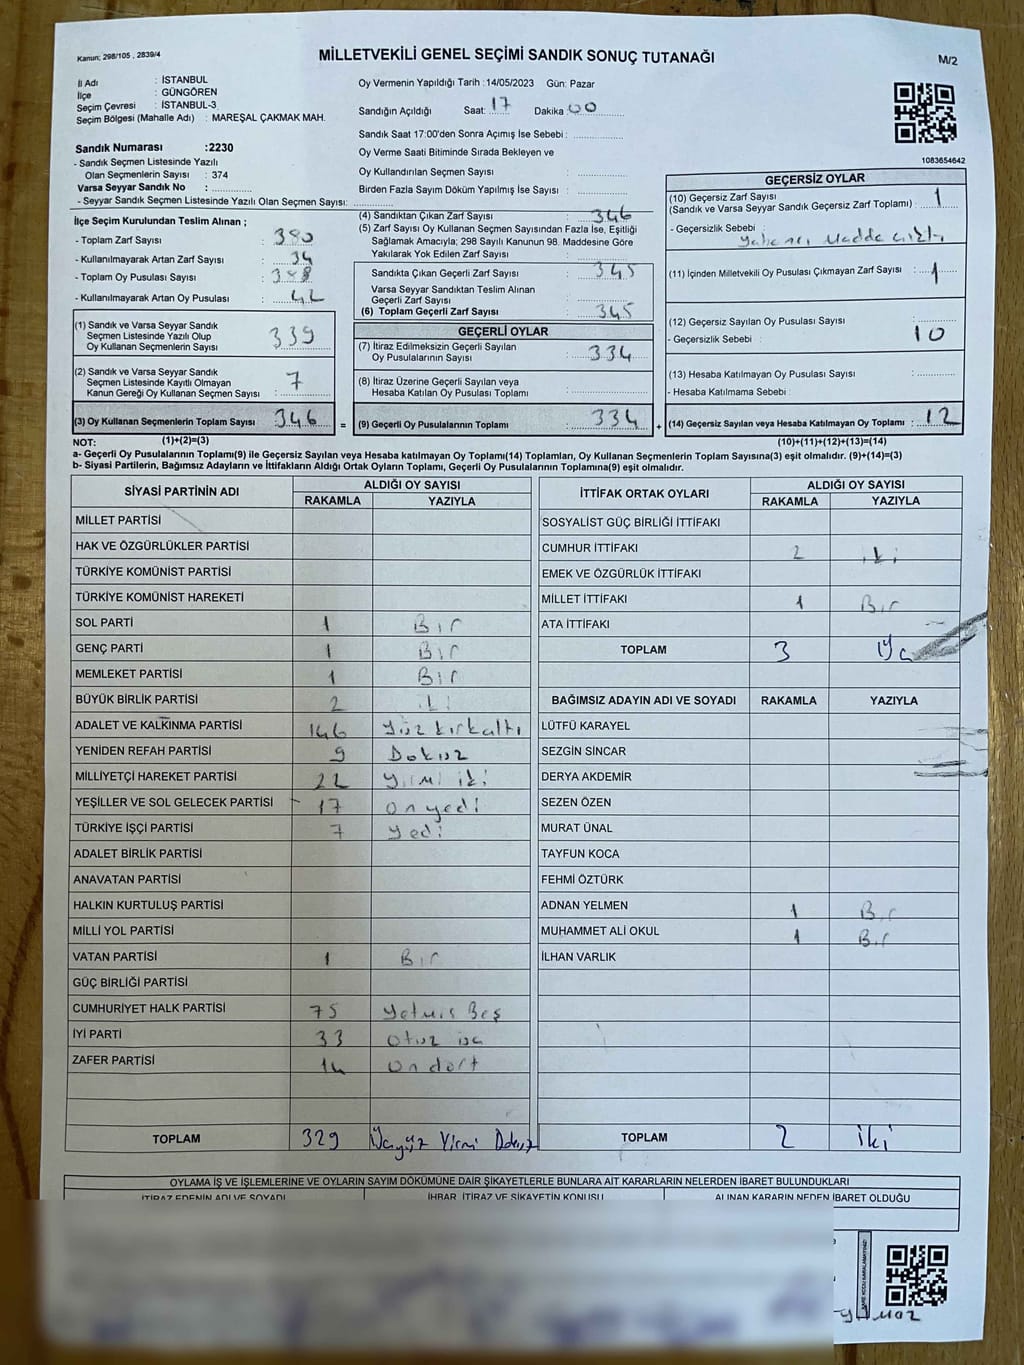 Kanun; 298/105 , 2839/4
MİLLETVEKİLİ GENEL SEÇİMİ SANDIK SONUÇ TUTANAĞI
M/2
İl Adı : İSTANBUL
İlçe : GÜNGÖREN
Seçim Çevresi : İSTANBUL-3
Seçim Bölgesi (Mahalle Adı) : MAREŞAL ÇAKMAK MAH.
Sandık Numarası :2230
- Sandık Seçmen Listesinde Yazılı
Olan Seçmenlerin Sayısı : 374
Varsa Seyyar Sandık No :
- Seyyar Sandık Seçmen Listesinde Yazılı Olan Seçmen Sayısı:
Oy Vermenin Yapıldığı Tarih :14/05/2023 Gün: Pazar
Sandığın Açıldığı Saat: 17 Dakika 00
Sandık Saat 17:00'den Sonra Açımış İse Sebebi :
Oy Verme Saati Bitiminde Sırada Bekleyen ve
Oy Kullandırılan Seçmen Sayısı :
Birden Fazla Sayım Döküm Yapılmış İse Sayısı :
1083654642
İlçe Seçim Kurulundan Teslim Alınan ;
- Toplam Zarf Sayısı : 380
- Kullanılmayarak Artan Zarf Sayısı : 34
- Toplam Oy Pusulası Sayısı : 388
- Kullanılmayarak Artan Oy Pusulası : 42
(1) Sandık ve Varsa Seyyar Sandık
Seçmen Listesinde Yazılı Olup
Oy Kullanan Seçmenlerin Sayısı : 339
(2) Sandık ve Varsa Seyyar Sandık
Seçmen Listesinde Kayıtlı Olmayan
Kanun Gereği Oy Kullanan Seçmen Sayısı : 7
(3) Oy Kullanan Seçmenlerin Toplam Sayısı : 346 =
(1)+(2)=(3)
(4) Sandıktan Çıkan Zarf Sayısı : 346
(5) Zarf Sayısı Oy Kullanan Seçmen Sayısından Fazla İse, Eşitliği
Sağlamak Amacıyla; 298 Sayılı Kanunun 98. Maddesine Göre
Yakılarak Yok Edilen Zarf Sayısı :
Sandıkta Çıkan Geçerli Zarf Sayısı : 345
Varsa Seyyar Sandıktan Teslim Alınan
Geçerli Zarf Sayısı :
(6) Toplam Geçerli Zarf Sayısı : 345
GEÇERLİ OYLAR
(7) İtiraz Edilmeksizin Geçerli Sayılan
Oy Pusulalarının Sayısı : 334
(8) İtiraz Üzerine Geçerli Sayılan veya
Hesaba Katılan Oy Pusulası Toplamı :
(9) Geçerli Oy Pusulalarının Toplamı : 334 +
GEÇERSİZ OYLAR
(10) Geçersiz Zarf Sayısı : 1
(Sandık ve Varsa Seyyar Sandık Geçersiz Zarf Toplamı)
- Geçersizlik Sebebi
Yabancı Madde
(11) İçinden Milletvekili Oy Pusulası Çıkmayan Zarf Sayısı : 1
(12) Geçersiz Sayılan Oy Pusulası Sayısı : 10
- Geçersizlik Sebebi :
(13) Hesaba Katılmayan Oy Pusulası Sayısı :
- Hesaba Katılmama Sebebi :
(14) Geçersiz Sayılan veya Hesaba Katılmayan Oy Toplamı : 12
(10)+(11)+(12)+(13)=(14)
NOT:
a- Geçerli Oy Pusulalarının Toplamı(9) ile Geçersiz Sayılan veya Hesaba katılmayan Oy Toplamı(14) Toplamları, Oy Kullanan Seçmenlerin Toplam Sayısına(3) eşit olmalıdır. (9)+(14)=(3)
b- Siyasi Partilerin, Bağımsız Adayların ve İttifakların Aldığı Ortak Oyların Toplamı, Geçerli Oy Pusulalarının Toplamına(9) eşit olmalıdır.
SİYASİ PARTİNİN ADI ALDIĞI OY SAYISI
RAKAMLA YAZIYLA
MİLLET PARTİSİ
HAK VE ÖZGÜRLÜKLER PARTİSİ
TÜRKİYE KOMÜNİST PARTİSİ
TÜRKİYE KOMÜNİST HAREKETİ
SOL PARTİ 1 Bir
GENÇ PARTİ 1 Bir
MEMLEKET PARTİSİ 1 Bir
BÜYÜK BİRLİK PARTİSİ 2 iki
ADALET VE KALKINMA PARTİSİ 146 Yüz kırkaltı
YENİDEN REFAH PARTİSİ 9 Dokuz
MİLLİYETÇİ HAREKET PARTİSİ 22 yirmi iki
YEŞİLLER VE SOL GELECEK PARTİSİ 17 onyedi
TÜRKİYE İŞÇİ PARTİSİ 7 yedi
ADALET BİRLİK PARTİSİ
ANAVATAN PARTİSİ
HALKIN KURTULUŞ PARTİSİ
MİLLİ YOL PARTİSİ
VATAN PARTİSİ 1 Bir
GÜÇ BİRLİĞİ PARTİSİ
CUMHURİYET HALK PARTİSİ 75 yetmis Beş
İYİ PARTİ 33 otuz üç
ZAFER PARTİSİ 14 ondört
TOPLAM 329 Üçyüz Yirmi Dokuz
İTTİFAK ORTAK OYLARI ALDIĞI OY SAYISI
RAKAMLA YAZIYLA
SOSYALİST GÜÇ BİRLİĞİ İTTİFAKI
CUMHUR İTTİFAKI 2 iki
EMEK VE ÖZGÜRLÜK İTTİFAKI
MİLLET İTTİFAKI 1 Bir
ATA İTTİFAKI
TOPLAM 3 Üç
BAĞIMSIZ ADAYIN ADI VE SOYADI RAKAMLA YAZIYLA
LÜTFÜ KARAYEL
SEZGİN SİNCAR
DERYA AKDEMİR
SEZEN ÖZEN
MURAT ÜNAL
TAYFUN KOCA
FEHMİ ÖZTÜRK
ADNAN YELMEN 1 Bir
MUHAMMET ALİ OKUL 1 Bir
İLHAN VARLIK
TOPLAM 2 İki
OYLAMA İŞ VE İŞLEMLERİNE VE OYLARIN SAYIM DÖKÜMÜNE DAİR ŞİKAYETLERLE BUNLARA AİT KARARLARIN NELERDEN İBARET BULUNDUKLARI
İTİRAZ EDENİN ADI VE SOYADI İHBAR, İTİRAZ VE ŞİKAYETİN KONUSU ALINAN KARARIN NEDEN İBARET OLDUĞU